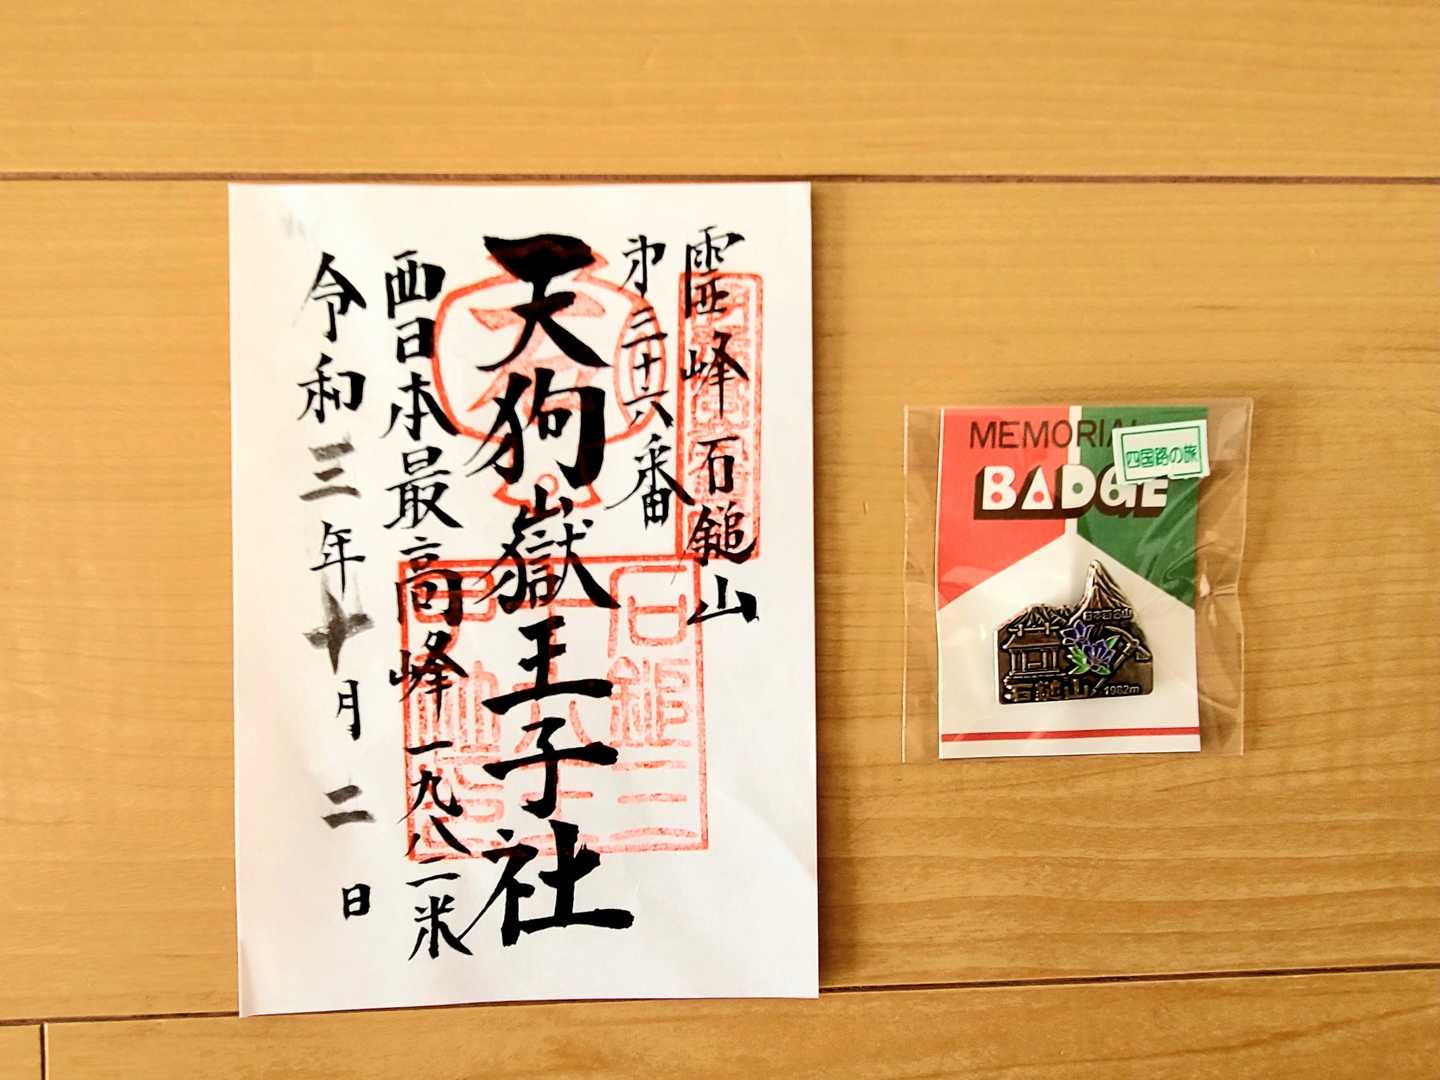 霊峰石鎚山
第三十六番
天狗嶽王子社
西日本最高峰一九八二米
令和三年十月二日
石鎚三
MEMORIAL
BADGE
四国路の旅
日本百名山
石鎚山
1982m